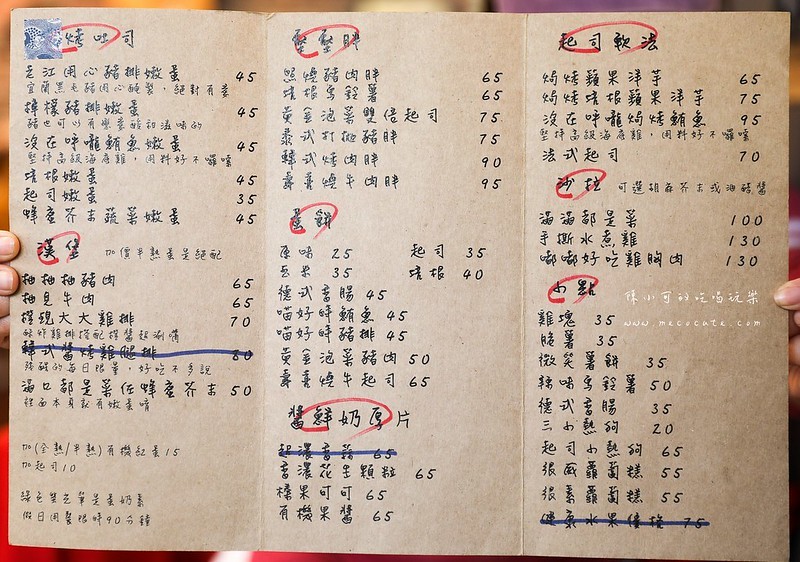 烤吐司
走江用心豬排嫩蛋 45
宜蘭黑毛豬用心醃製，絕對有蔘
檸檬豬排嫩蛋 45
豬也可以有戀愛般初滋味的
沒在呼嚨鮪魚嫩蛋 45
堅持高級海底雞，用料好不囉嗦
培根嫩蛋 45
起司嫩蛋 35
蜂蜜芥末蔬菜嫩蛋 45
漢堡 加價半熟蛋是絕配
抽抽抽豬肉 65
抽見牛肉 65
撞現大大雞排 70
酥炸雞排搭配撞醬超涮嘴
韓式醬烤雞腿排 80
隊醒的每日限量，好吃不多說
滿口都是菜佐蜂蜜芥末 50
裡面本身就有嫩蛋唷
加(全熟/半熟)有機紅蛋15
加起司10
綠色星色筆是蛋奶素
假日用餐限時90分鐘
墾墾胖
照燒豬肉胖 65
培根馬鈴薯 65
黃金泡菜雙倍起司 75
泰式打拋豬胖 75
韓式烤肉胖 90
壽喜燒牛肉胖 95
蛋餅
原味 25 起司 35
玉米 35 培根 40
德式香腸 45
喵好時鮪魚 45
喵好時豬排 45
黃金泡菜豬肉 50
壽喜燒牛起司 65
醬鮮奶厚片
起濃香蒜 65
香濃花生顆粒 65
榛果可可 65
有機果醬 65
起司軟法
焗烤蘋果洋芋 65
焗烤培根蘋果洋芋 75
沒在呼嚨焗烤鮪魚 95
堅持高級海底雞，用料好不囉嗦
法式起司 70
沙拉 可選胡麻芥末或油醋醬
滿滿都是菜 100
手撕水煮雞 130
嘟嘟好吃雞胸肉 130
小點
雞塊 35
脆薯 35
微笑薯餅 35
辣味馬鈴薯 50
德式香腸 35
三小熱狗 20
起司小熱狗 65
很葷蘿蔔糕 55
很素蘿蔔糕 55
健康水果優格 75
陳小可的吃喝玩樂
www.mecocute.com